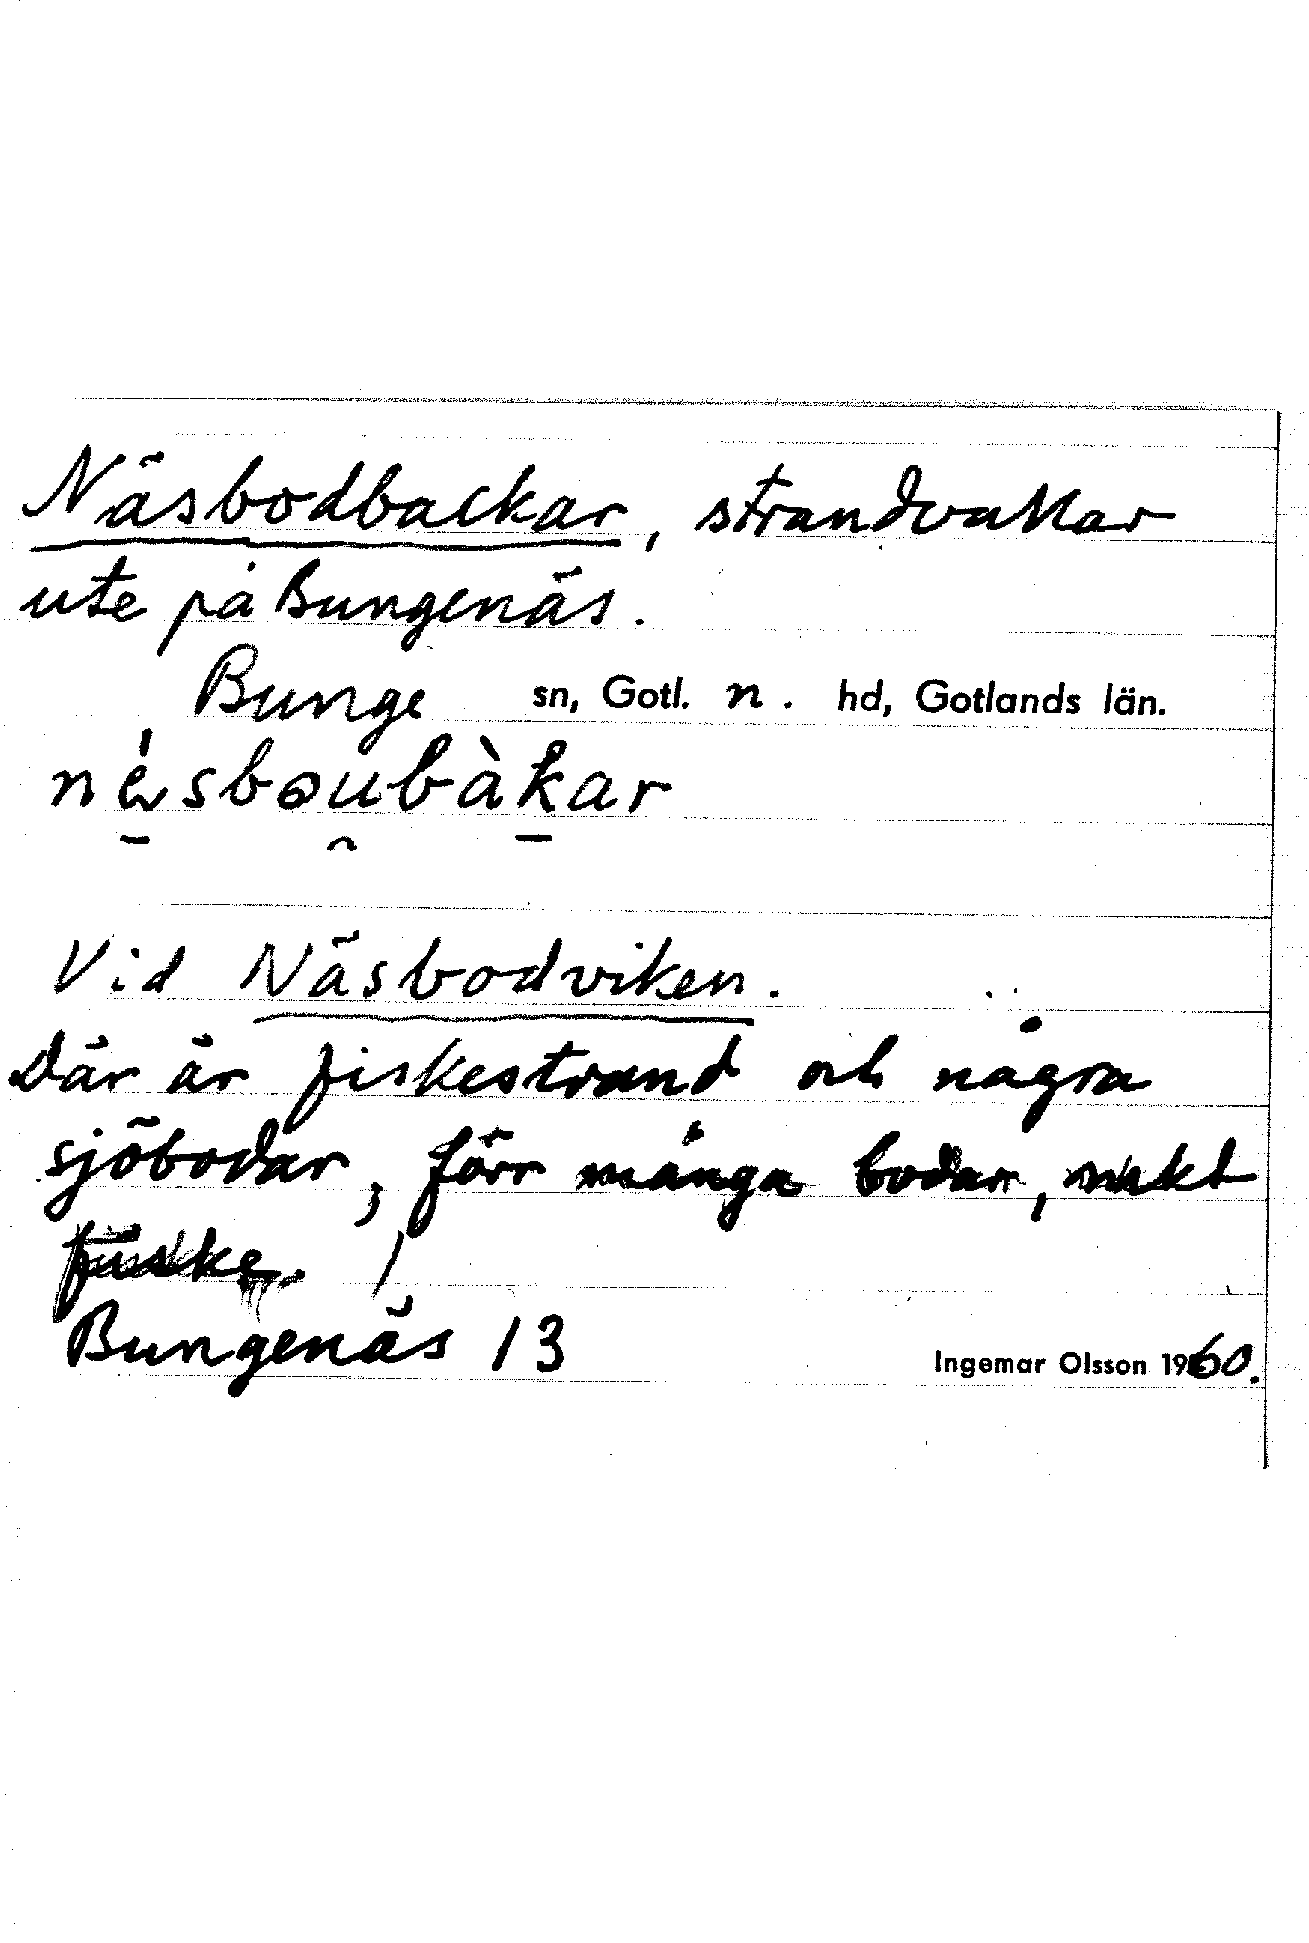 Näsbodbackar, strandvallar
ute på Bungenäs.
Bunge sn, Gotl. n. hd, Gotlands län.
nèsboubàkar
Vid Näsbodviken.
Där är fiskestrand och några
sjöbodar, förr många bodar,
fiske.
Bungenäs 13
Ingemar Olsson 1960.